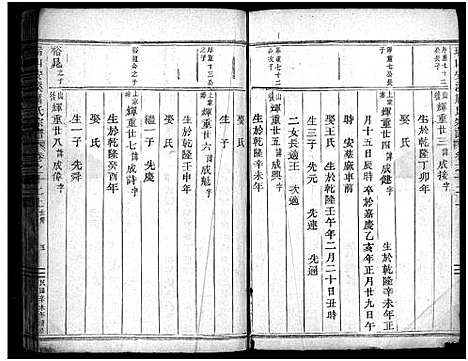 輝重廿三 諱成後 字
生於乾隆丁卯年
娶氏
厚重七公長子
上宗輝重廿四 諱成健 字 生於乾隆辛未年正
月十五日辰時 卒於嘉慶乙亥年正月廿九日午
時 安墓廠車前
娶王氏 生於乾隆壬午年二月二十日丑時
生三子 先元 先連 先通
二女長適王 次適
厚重七十二公子
山輝重廿五 諱成興 字
生於乾隆辛未年
娶氏
生子
厚重十三公子
上宗輝重廿六 諱成魁 字
生於乾隆壬申年
娶氏
繼一子 先慶
裕昆公之子
上宗輝重廿七 諱成詩 字
生於乾隆癸酉年
娶氏
生一子 先舜
裕昆之子
山輝重廿八 諱成偉 字
五